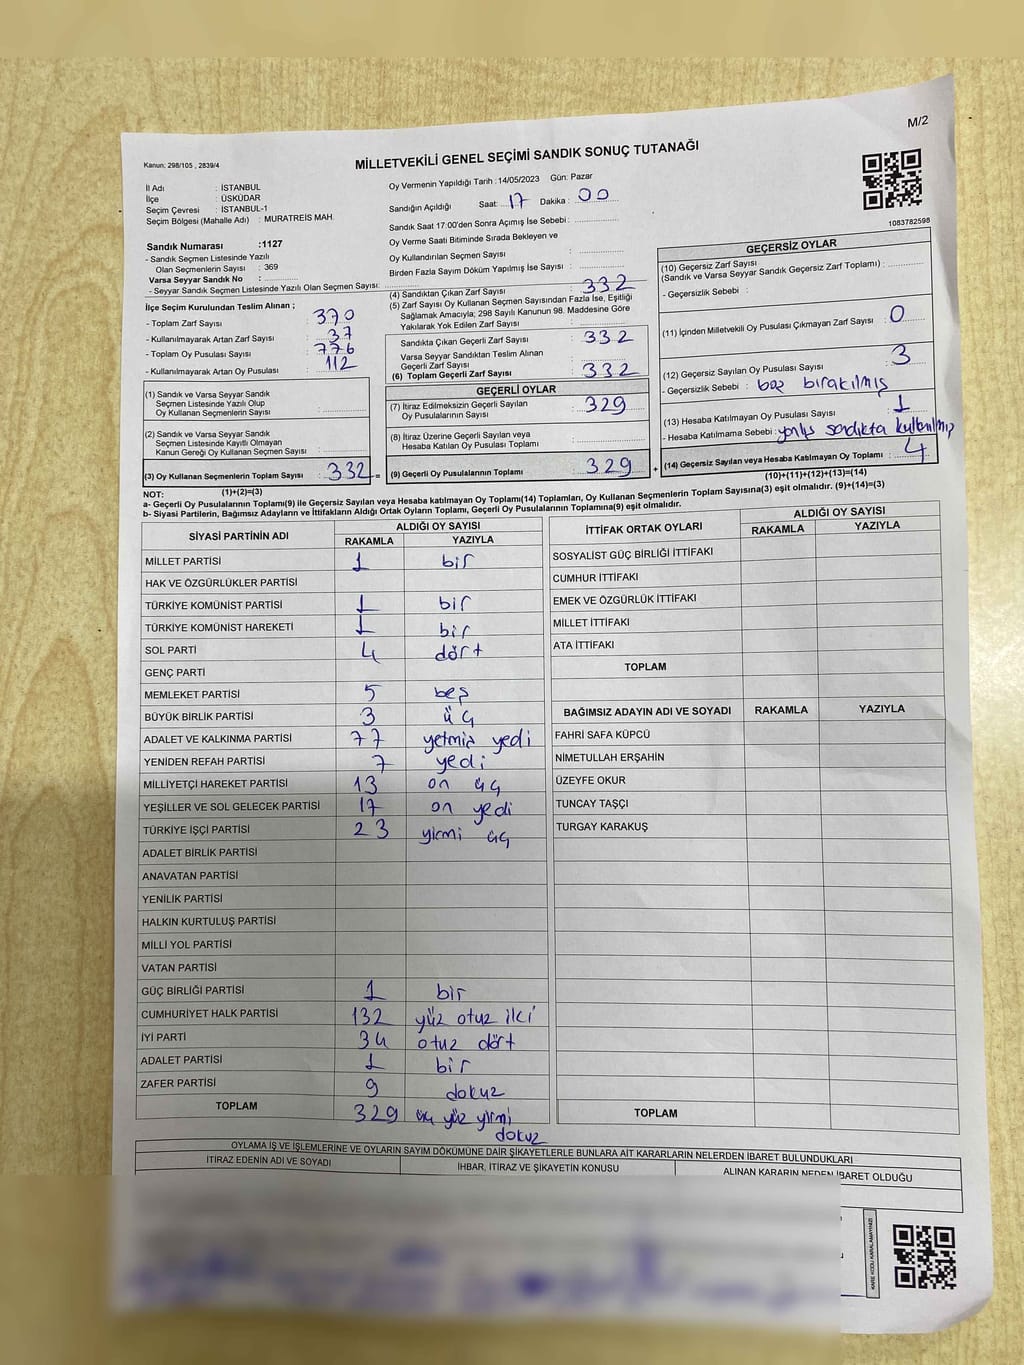 M/2
Kanun: 298/105 , 2839/4
MİLLETVEKİLİ GENEL SEÇİMİ SANDIK SONUÇ TUTANAĞI
İl Adı : İSTANBUL
İlçe : ÜSKÜDAR
Seçim Çevresi : İSTANBUL-1
Seçim Bölgesi (Mahalle Adı) : MURATREİS MAH.
Sandık Numarası :1127
- Sandık Seçmen Listesinde Yazılı
Olan Seçmenlerin Sayısı : 369
Varsa Seyyar Sandık No :
- Seyyar Sandık Seçmen Listesinde Yazılı Olan Seçmen Sayısı:
İlçe Seçim Kurulundan Teslim Alınan ;
- Toplam Zarf Sayısı : 370
- Kullanılmayarak Artan Zarf Sayısı : 37
- Toplam Oy Pusulası Sayısı : 776
- Kullanılmayarak Artan Oy Pusulası : 112
(1) Sandık ve Varsa Seyyar Sandık
Seçmen Listesinde Yazılı Olup
Oy Kullanan Seçmenlerin Sayısı :
(2) Sandık ve Varsa Seyyar Sandık
Seçmen Listesinde Kayıtlı Olmayan
Kanun Gereği Oy Kullanan Seçmen Sayısı :
(3) Oy Kullanan Seçmenlerin Toplam Sayısı : 332 =
(1)+(2)=(3)
Oy Vermenin Yapıldığı Tarih : 14/05/2023 Gün: Pazar
Sandığın Açıldığı Saat: 17 Dakika : 00
Sandık Saat 17:00'den Sonra Açımış İse Sebebi :
Oy Verme Saati Bitiminde Sırada Bekleyen ve
Oy Kullandırılan Seçmen Sayısı :
Birden Fazla Sayım Döküm Yapılmış İse Sayısı :
(4) Sandıktan Çıkan Zarf Sayısı : 332
(5) Zarf Sayısı Oy Kullanan Seçmen Sayısından Fazla İse, Eşitliği
Sağlamak Amacıyla; 298 Sayılı Kanunun 98. Maddesine Göre
Yakılarak Yok Edilen Zarf Sayısı :
Sandıkta Çıkan Geçerli Zarf Sayısı : 332
Varsa Seyyar Sandıktan Teslim Alınan
Geçerli Zarf Sayısı :
(6) Toplam Geçerli Zarf Sayısı : 332
GEÇERLİ OYLAR
(7) İtiraz Edilmeksizin Geçerli Sayılan
Oy Pusulalarının Sayısı : 329
(8) İtiraz Üzerine Geçerli Sayılan veya
Hesaba Katılan Oy Pusulası Toplamı :
(9) Geçerli Oy Pusulalarının Toplamı : 329 +
1083782598
GEÇERSİZ OYLAR
(10) Geçersiz Zarf Sayısı
(Sandık ve Varsa Seyyar Sandık Geçersiz Zarf Toplamı) :
- Geçersizlik Sebebi :
(11) İçinden Milletvekili Oy Pusulası Çıkmayan Zarf Sayısı : 0
(12) Geçersiz Sayılan Oy Pusulası Sayısı : 3
- Geçersizlik Sebebi : boş bırakılmış
(13) Hesaba Katılmayan Oy Pusulası Sayısı : 1
- Hesaba Katılmama Sebebi : yanlış sandıkta kullanılmış
(14) Geçersiz Sayılan veya Hesaba Katılmayan Oy Toplamı : 4
(10)+(11)+(12)+(13)=(14)
NOT:
a- Geçerli Oy Pusulalarının Toplamı(9) ile Geçersiz Sayılan veya Hesaba katılmayan Oy Toplamı(14) Toplamları, Oy Kullanan Seçmenlerin Toplam Sayısına(3) eşit olmalıdır. (9)+(14)=(3)
b- Siyasi Partilerin, Bağımsız Adayların ve İttifakların Aldığı Ortak Oyların Toplamı, Geçerli Oy Pusulalarının Toplamına(9) eşit olmalıdır.
SİYASİ PARTİNİN ADI ALDIĞI OY SAYISI
RAKAMLA YAZIYLA
MİLLET PARTİSİ 1 bir
HAK VE ÖZGÜRLÜKLER PARTİSİ
TÜRKİYE KOMÜNİST PARTİSİ 1 bir
TÜRKİYE KOMÜNİST HAREKETİ 1 bir
SOL PARTİ 4 dört
GENÇ PARTİ
MEMLEKET PARTİSİ 5 beş
BÜYÜK BİRLİK PARTİSİ 3 üç
ADALET VE KALKINMA PARTİSİ 77 yetmiş yedi
YENİDEN REFAH PARTİSİ 7 yedi
MİLLİYETÇİ HAREKET PARTİSİ 13 on üç
YEŞİLLER VE SOL GELECEK PARTİSİ 17 on yedi
TÜRKİYE İŞÇİ PARTİSİ 23 yirmi üç
ADALET BİRLİK PARTİSİ
ANAVATAN PARTİSİ
YENİLİK PARTİSİ
HALKIN KURTULUŞ PARTİSİ
MİLLİ YOL PARTİSİ
VATAN PARTİSİ
GÜÇ BİRLİĞİ PARTİSİ 1 bir
CUMHURİYET HALK PARTİSİ 132 yüz otuz iki
İYİ PARTİ 34 otuz dört
ADALET PARTİSİ 1 bir
ZAFER PARTİSİ 9 dokuz
TOPLAM 329 üç yüz yirmi
dokuz
İTTİFAK ORTAK OYLARI ALDIĞI OY SAYISI
RAKAMLA YAZIYLA
SOSYALİST GÜÇ BİRLİĞİ İTTİFAKI
CUMHUR İTTİFAKI
EMEK VE ÖZGÜRLÜK İTTİFAKI
MİLLET İTTİFAKI
ATA İTTİFAKI
TOPLAM
BAĞIMSIZ ADAYIN ADI VE SOYADI RAKAMLA YAZIYLA
FAHRİ SAFA KÜPCÜ
NİMETULLAH ERŞAHİN
ÜZEYFE OKUR
TUNCAY TAŞÇI
TURGAY KARAKUŞ
TOPLAM
OYLAMA İŞ VE İŞLEMLERİNE VE OYLARIN SAYIM DÖKÜMÜNE DAİR ŞİKAYETLERLE BUNLARA AİT KARARLARIN NELERDEN İBARET BULUNDUKLARI
İTİRAZ EDENİN ADI VE SOYADI İHBAR, İTİRAZ VE ŞİKAYETİN KONUSU ALINAN KARARIN NEDEN İBARET OLDUĞU
KARE KODU KARALAMAYINIZ!